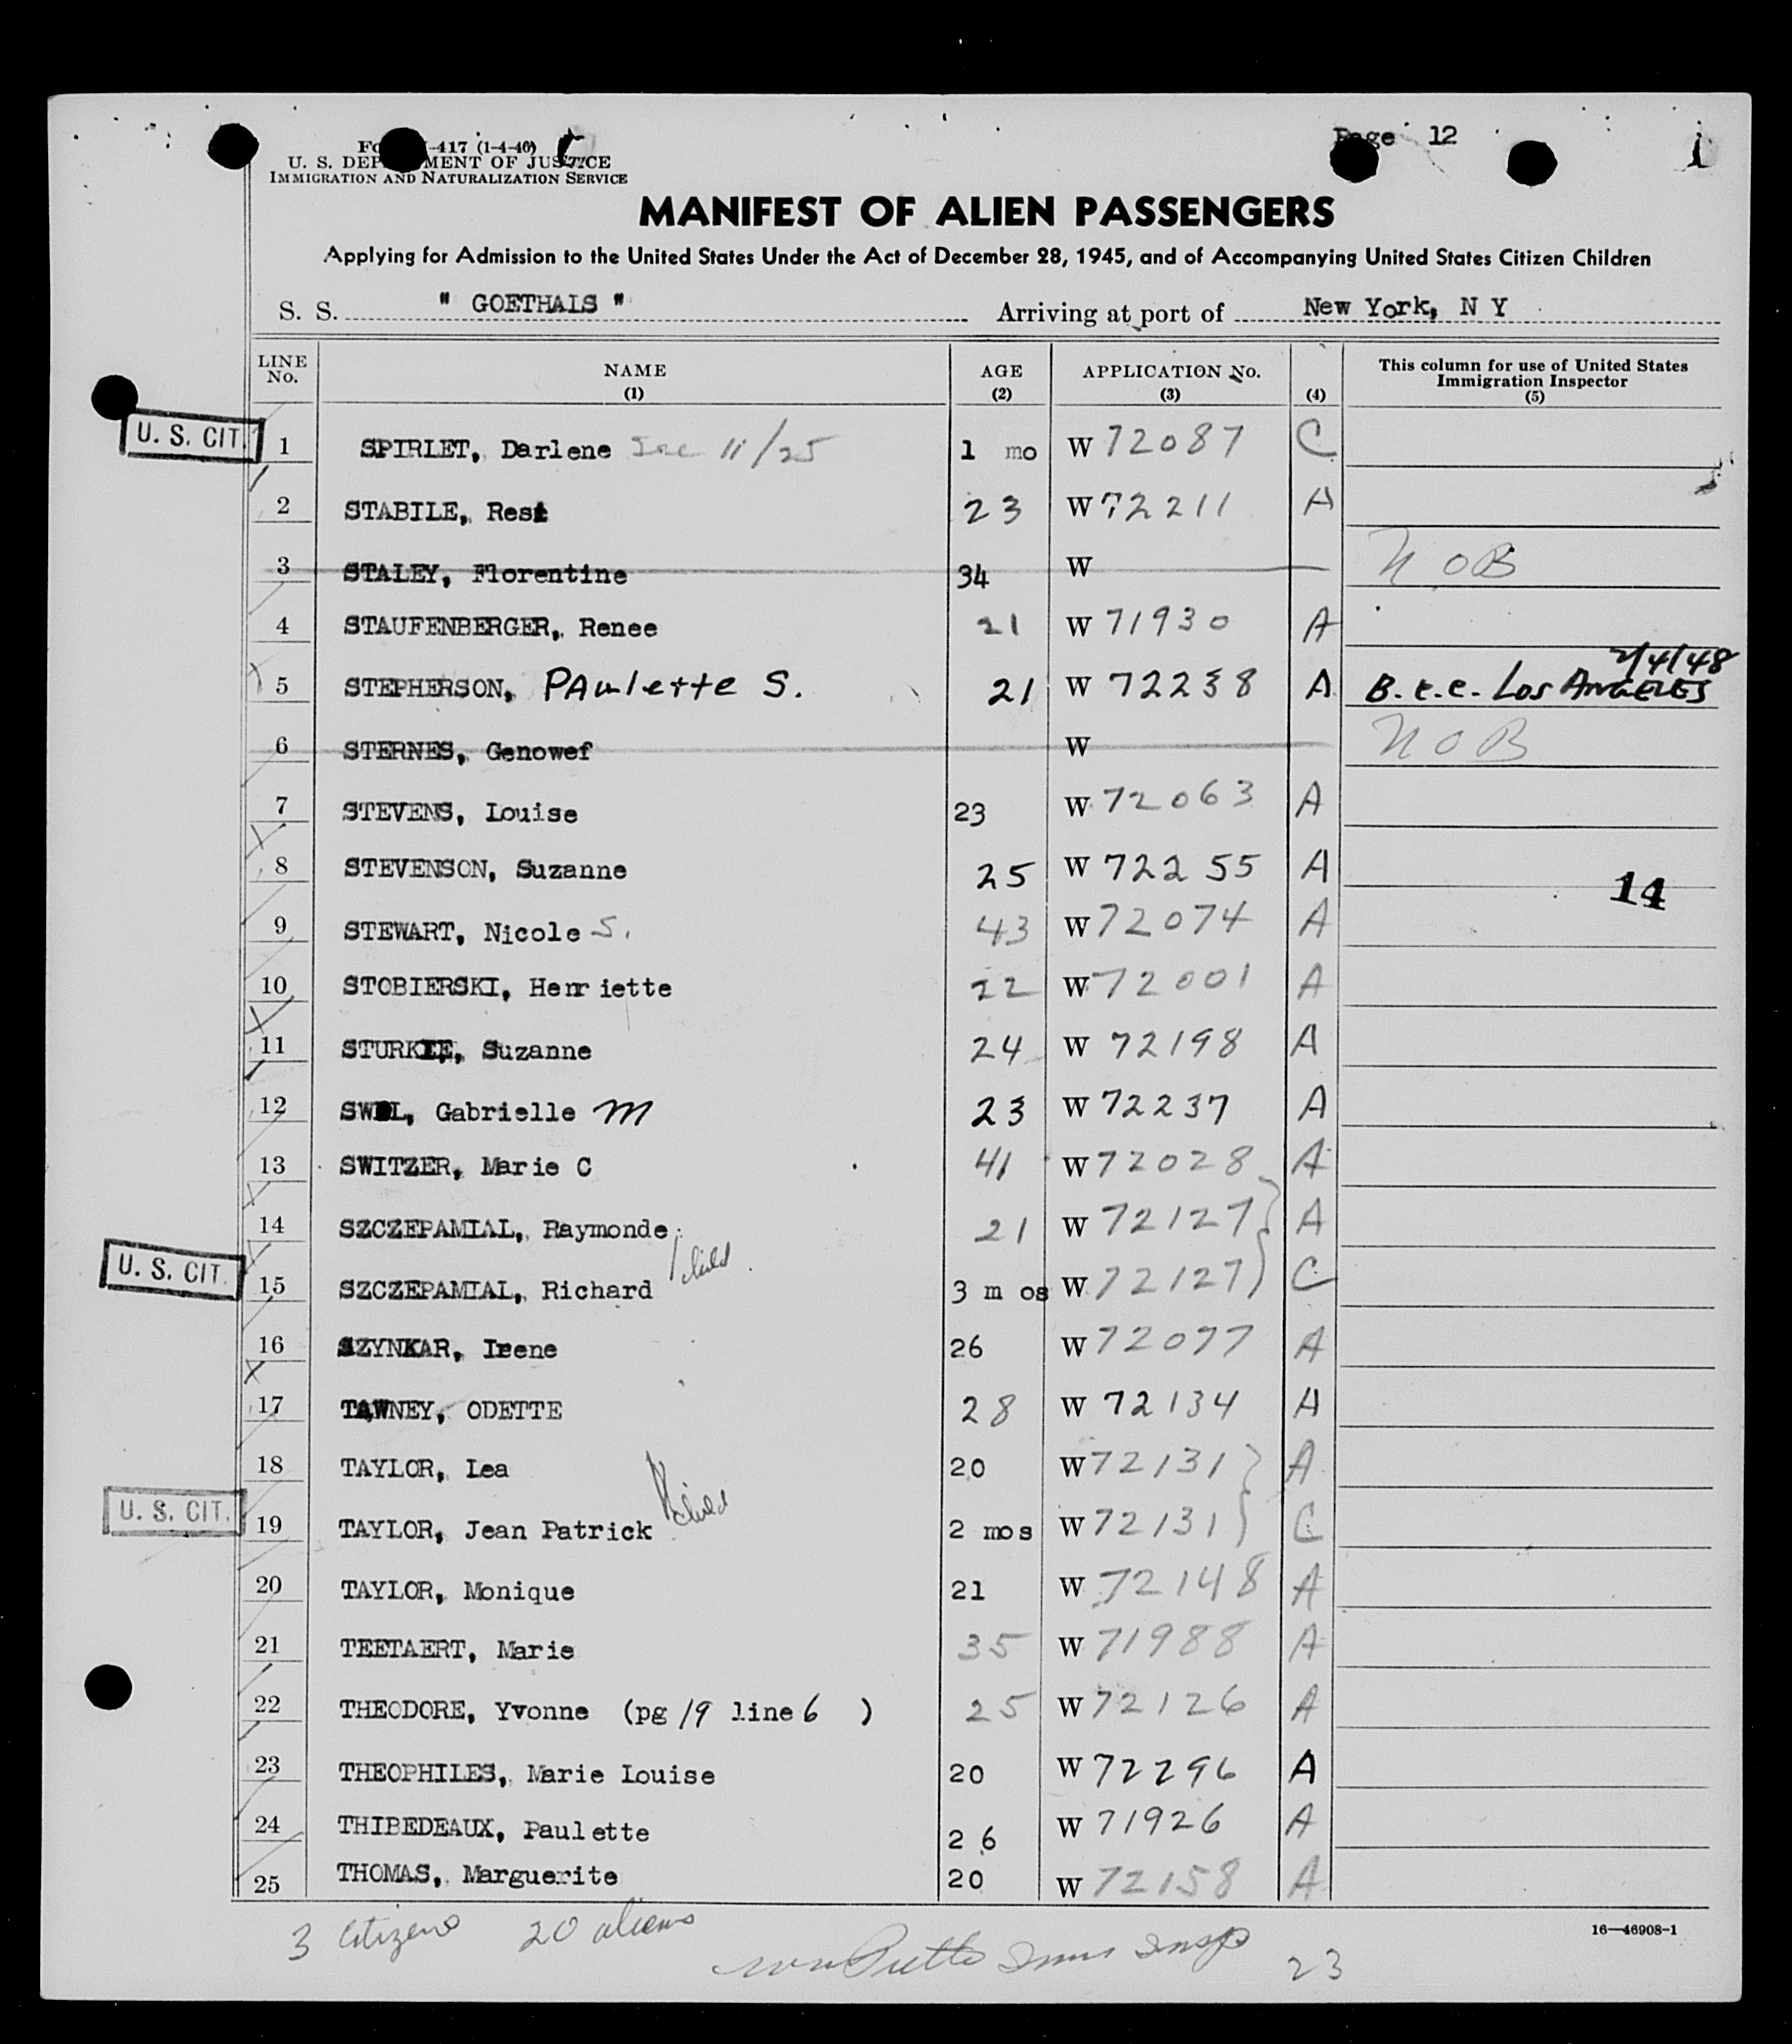 Page 12
U. S. DEPARTMENT OF JUSTICE
IMMIGRATION AND NATURALIZATION SERVICE
-417 (1-4-46)
MANIFEST OF ALIEN PASSENGERS
Applying for Admission to the United States Under the Act of December 28, 1945, and of Accompanying United States Citizen Children
S. S. " GOETHALS " Arriving at port of New York, N Y
LINE No. NAME (1) AGE (2) APPLICATION No. (3) (4) This column for use of United States Immigration Inspector (5)
U. S. CIT. 1 SPIRLET, Darlene 11/25 1 mo W 72087 C
2 STABILE, W 72211 A 23
3 STALEY, Florentine 34 W N O B
4 STAUFENBERGER, Renee 21 W 71930 A
2/4/48
5 STEPHERSON, PAulette S. 21 W 72238 A B. C. C. Los ANGELES
6 STERNES, Genowef W N O B
7 STEVENS, Louise 23 W 72063 A
8 STEVENSON, Suzanne 25 W 72255 A 14
9 STEWART, Nicole S. 43 W 72074 A
10 STOBIERSKI, Henriette 22 W 72001 A
11 STURKIE, Suzanne 24 W 72198 A
12 Gabrielle M 23 W 72237 A
13 SWITZER, Marie C 41 W 72028 A
14 SZCZEPAMIAL, Raymonde 21 W 72127 A
U. S. CIT. 15 SZCZEPAMIAL, Richard child 3 mos W 72127 C
16 SZYNKAR, Irene 26 W 72077 A
17 TAWNEY, ODETTE 28 W 72134 A
18 TAYLOR, Lea 20 W 72131 A
U. S. CIT. 19 TAYLOR, Jean Patrick child 2 mos W 72131 C
20 TAYLOR, Monique 21 W 72148 A
21 TEETAERT, Marie 35 W 71988 A
22 THEODORE, Yvonne (pg 19 line 6 ) 25 W 72126 A
23 THEOPHILES, Marie Louise 20 W 72296 A
24 THIBEDEAUX, Paulette 26 W 71926 A
25 THOMAS, Marguerite 20 W 72158 A
16—46908-1
3 Citizens 20 aliens Insp 23